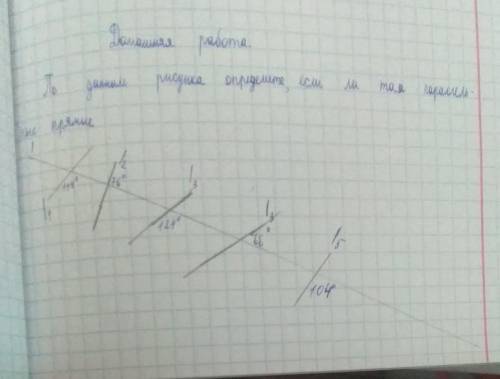 Домашняя работа.
По данном рисунка определите, есть ли там паралель-
ные прямые
l
l₂
l₃
76°
l₁
121°
66°
l₅
104°